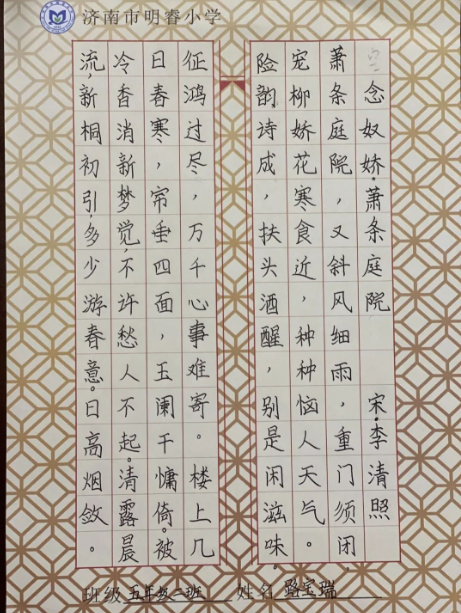 济南市明睿小学
念奴娇·萧条庭院 宋·李清照
萧条庭院，又斜风细雨，重门须闭
宠柳娇花寒食近，种种恼人天气。
险韵诗成，扶头酒醒，别是闲滋味。
征鸿过尽，万千心事难寄。楼上几
日春寒，帘垂四面，玉阑干慵倚。被
冷香消新梦觉，不许愁人不起。清露晨
流，新桐初引，多少游春意。日高烟敛。
班级 五年级二班 姓名 宝瑞